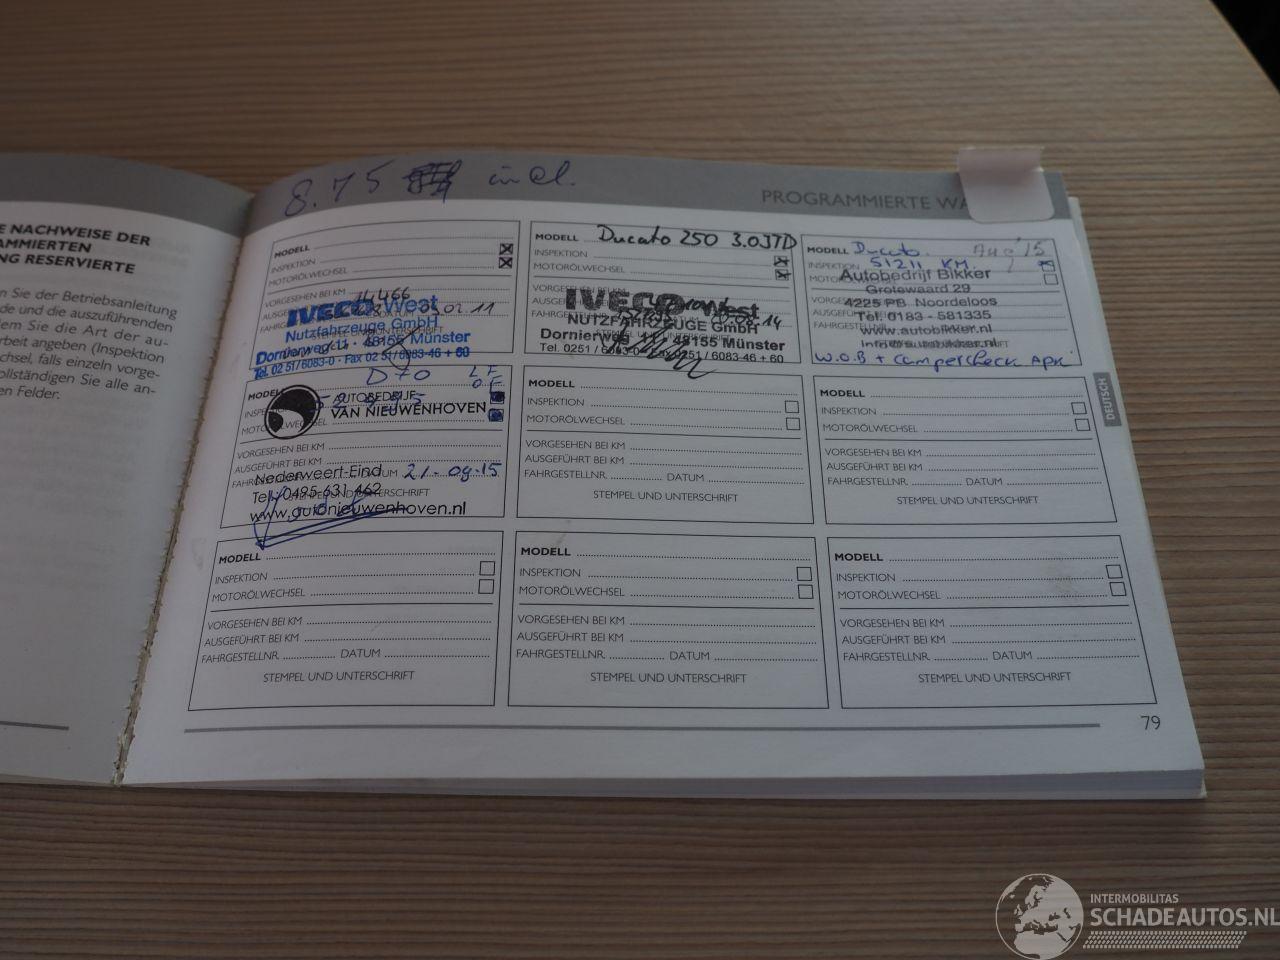 8.75 incl.
PROGRAMMIERTE
E NACHWEISE DER
AMMIERTEN
NG RESERVIERTE
n Sie der Betriebsanleitung
de und die auszuführenden
dem Sie die Art der au-
rbeit angeben (Inspektion
chsel, falls einzeln vorge-
ollständigen Sie alle an-
en Felder.
MODELL
INSPEKTION
MOTORÖLWECHSEL
VORGESEHEN BEI KM
IVECO West
Nutzfahrzeuge GmbH
Dornierweg 11 · 48155 Münster
Tel. 02 51/6083-0 · Fax 02 51/6083-46 + 60
MODELL Ducato 250 3.0JTD
INSPEKTION
MOTORÖLWECHSEL
VORGESEHEN BEI KM
IVECO West
NUTZFAHRZEUGE GmbH
Dornierweg 48155 Münster
Tel. 0251 / 6083-0 Fax 0251 / 6083-46 + 60
MODELL Ducato. Aug '15
INSPEKTION 51211 KM.
MOTORÖLWECHSEL
Autobedrijf Bikker
Grotewaard 29
4225 PB Noordeloos
Tel. 0183 - 581335
www.autobikker.nl
info@autobikker.nl
W.O.B + Campercheck APK
D70 LF
OF
AUTOBEDRIJF
VAN NIEUWENHOVEN
VORGESEHEN BEI KM
AUSGEFÜHRT BEI KM
DATUM 21-09-15
Nederweert-Eind
Tel. 0495-631 462
www.autonieuwenhoven.nl
MODELL
INSPEKTION
MOTORÖLWECHSEL
VORGESEHEN BEI KM
AUSGEFÜHRT BEI KM
FAHRGESTELLNR. DATUM
STEMPEL UND UNTERSCHRIFT
MODELL
INSPEKTION
MOTORÖLWECHSEL
VORGESEHEN BEI KM
AUSGEFÜHRT BEI KM
FAHRGESTELLNR. DATUM
STEMPEL UND UNTERSCHRIFT
DEUTSCH
MODELL
INSPEKTION
MOTORÖLWECHSEL
VORGESEHEN BEI KM
AUSGEFÜHRT BEI KM
FAHRGESTELLNR. DATUM
STEMPEL UND UNTERSCHRIFT
MODELL
INSPEKTION
MOTORÖLWECHSEL
VORGESEHEN BEI KM
AUSGEFÜHRT BEI KM
FAHRGESTELLNR. DATUM
STEMPEL UND UNTERSCHRIFT
MODELL
INSPEKTION
MOTORÖLWECHSEL
VORGESEHEN BEI KM
AUSGEFÜHRT BEI KM
FAHRGESTELLNR. DATUM
STEMPEL UND UNTERSCHRIFT
79
INTERMOBILITAS
SCHADEAUTOS.NL